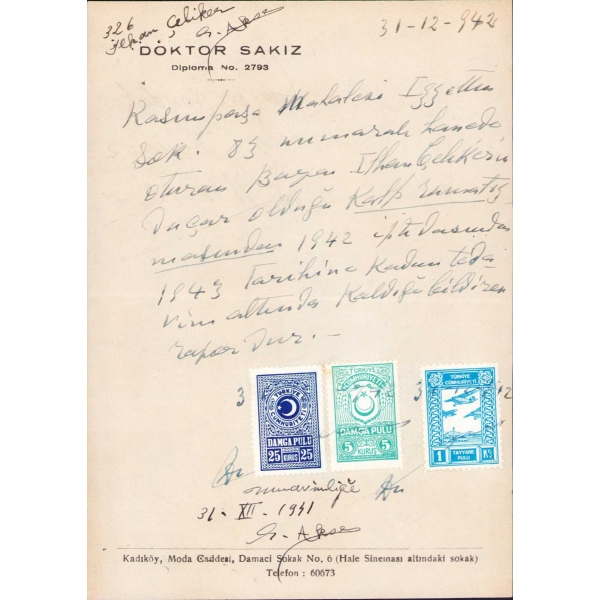 326
İlhan Çeliker
31-12-942
DOKTOR SAKIZ
Diploma No. 2793
Kasımpaşa Mahalesi İzzettin
Sok. 83 numaralı hanede
oturan Bayan İlhan Çelikerin
Duçar olduğu Kalp romatiz
masından 1942 iptidasından
1943 Tarihine Kadar teda
vim altında Kaldığı bildiren
rapor dur.-
TÜRKİYE
CUMHURİYETİ
DAMGA PULU
25 KURUŞ 25
TÜRKİYE
CUMHURİYETİ
DAMGA PULU
5 KURUŞ 5
TÜRKİYE
CUMHURİYETİ
1 Kş
TAYYARE
PULU
31-XII-1941
Kadıköy, Moda Caddesi, Damacı Sokak No. 6 (Hale Sineması altındaki sokak)
Telefon : 60673